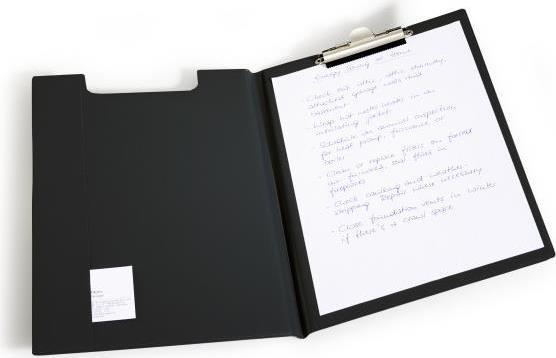 Energy Saving at Home
- Check out attic, attic stairway,
attached garage walls and
basement
- Wrap hot water heater in an
insulating jacket
- Schedule an annual inspection
for heat pump, furnance or
boiler
- Clean or replace filters on forced
air furnaces, and flues in
fireplaces
- Check caulking and weather-
stripping. Repair where necessary
- Close foundation vents in winter
if there's a crawl space